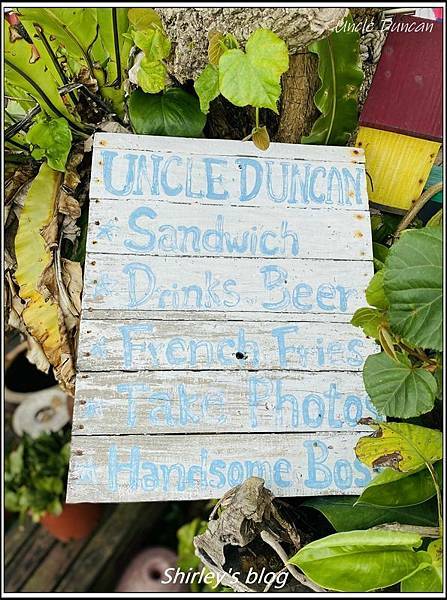 Uncle Duncan
UNCLE DUNCAN
☆ Sandwich
☆ Drinks. Beer
☆ French Fries
☆ Take Photos
☆ Handsome Boss
Shirley's blog